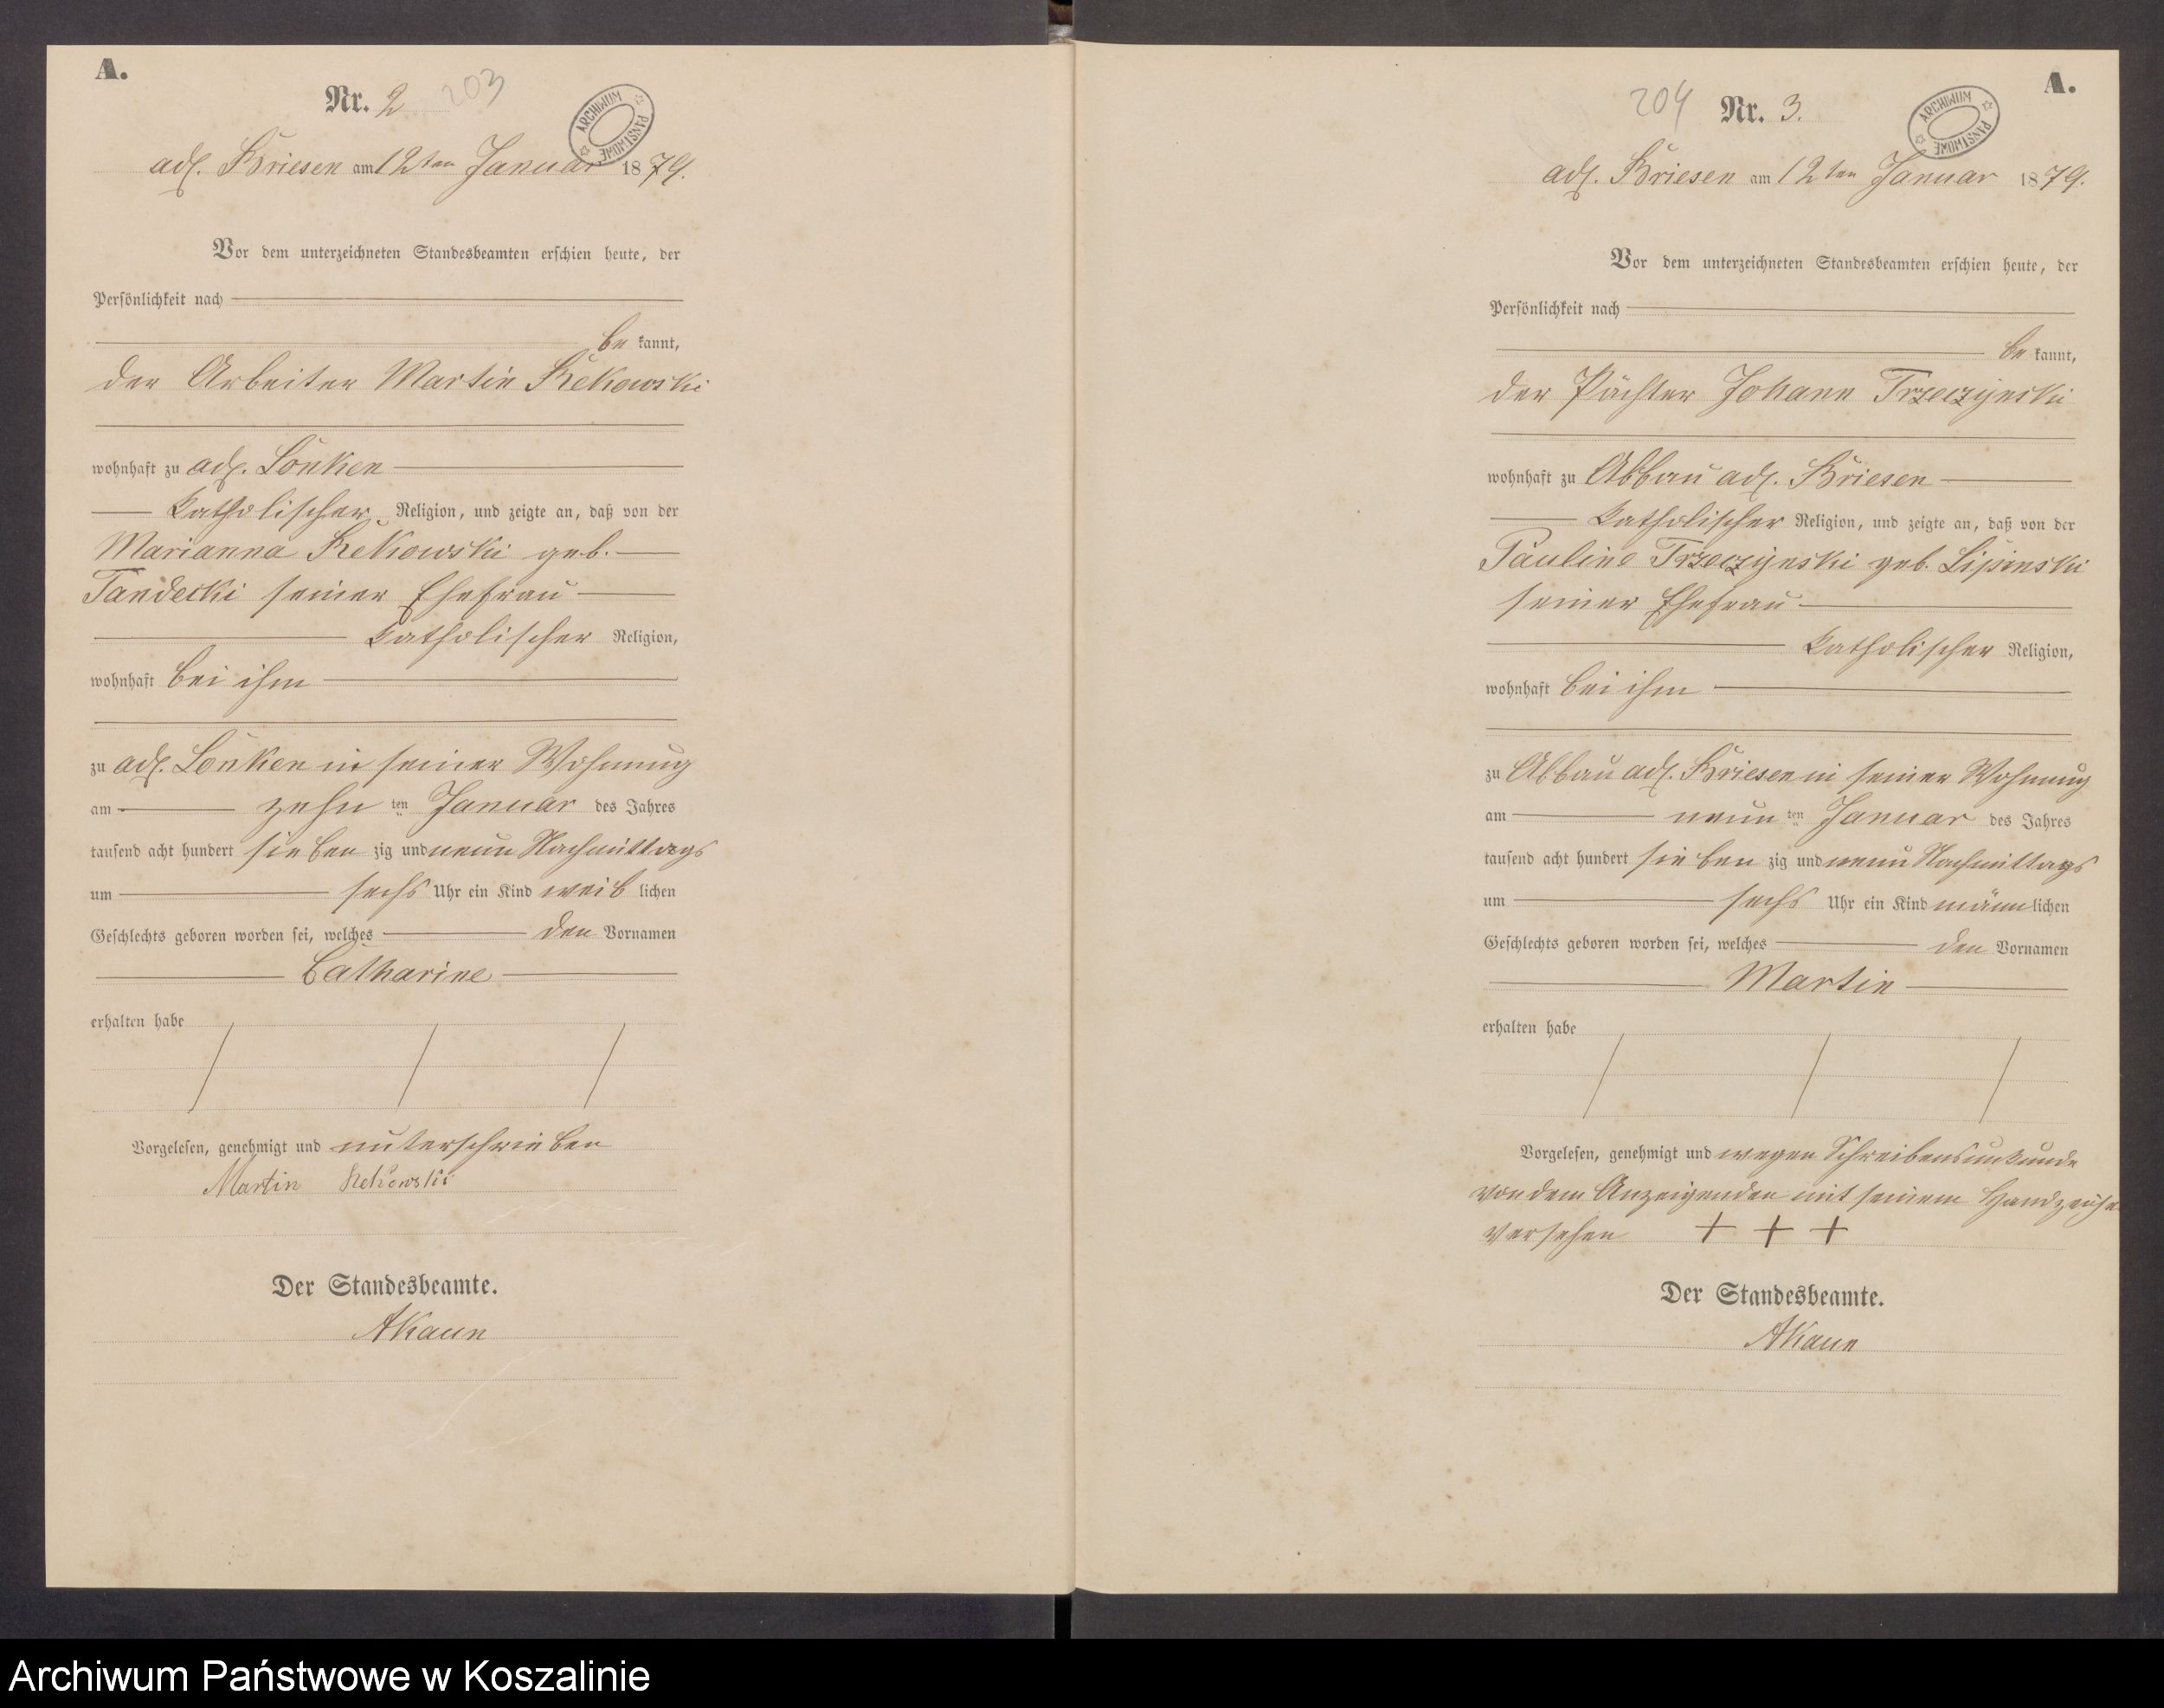 A.
Nr. 2 203
ARCHIWUM PAŃSTWOWE
adl. Briesen am 12ten Januar 1879.
Vor dem unterzeichneten Standesbeamten erschien heute, der
Persönlichkeit nach
be kannt,
der Arbeiter Martin Rekowski
wohnhaft zu adl. Lonken
katholischer Religion, und zeigte an, daß von der
Marianna Rekowski geb.
Tandecki seiner Ehefrau
katholischer Religion,
wohnhaft bei ihm
zu adl. Lonken in seiner Wohnung
am zehn ten Januar des Jahres
tausend acht hundert sieben zig und neun Nachmittags
um sechs Uhr ein Kind weib lichen
Geschlechts geboren worden sei, welches den Vornamen
Catharine
erhalten habe
Vorgelesen, genehmigt und unterschrieben
Martin Rekowski
Der Standesbeamte.
AKaun
A.
204 Nr. 3.
ARCHIWUM PAŃSTWOWE
adl. Briesen am 12ten Januar 1879.
Vor dem unterzeichneten Standesbeamten erschien heute, der
Persönlichkeit nach
be kannt,
der Pächter Johann Trzeczynski
wohnhaft zu Abbau adl. Briesen
katholischer Religion, und zeigte an, daß von der
Pauline Trzeczynski geb. Lipinski
seiner Ehefrau
katholischer Religion,
wohnhaft bei ihm
zu Abbau adl. Briesen in seiner Wohnung
am neun ten Januar des Jahres
tausend acht hundert sieben zig und neun Nachmittags
um sechs Uhr ein Kind männ lichen
Geschlechts geboren worden sei, welches den Vornamen
Martin
erhalten habe
Vorgelesen, genehmigt und wegen Schreibensunkunde
von dem Anzeigenden mit seinem Handzeichen
versehen + + +
Der Standesbeamte.
AKaun
Archiwum Państwowe w Koszalinie